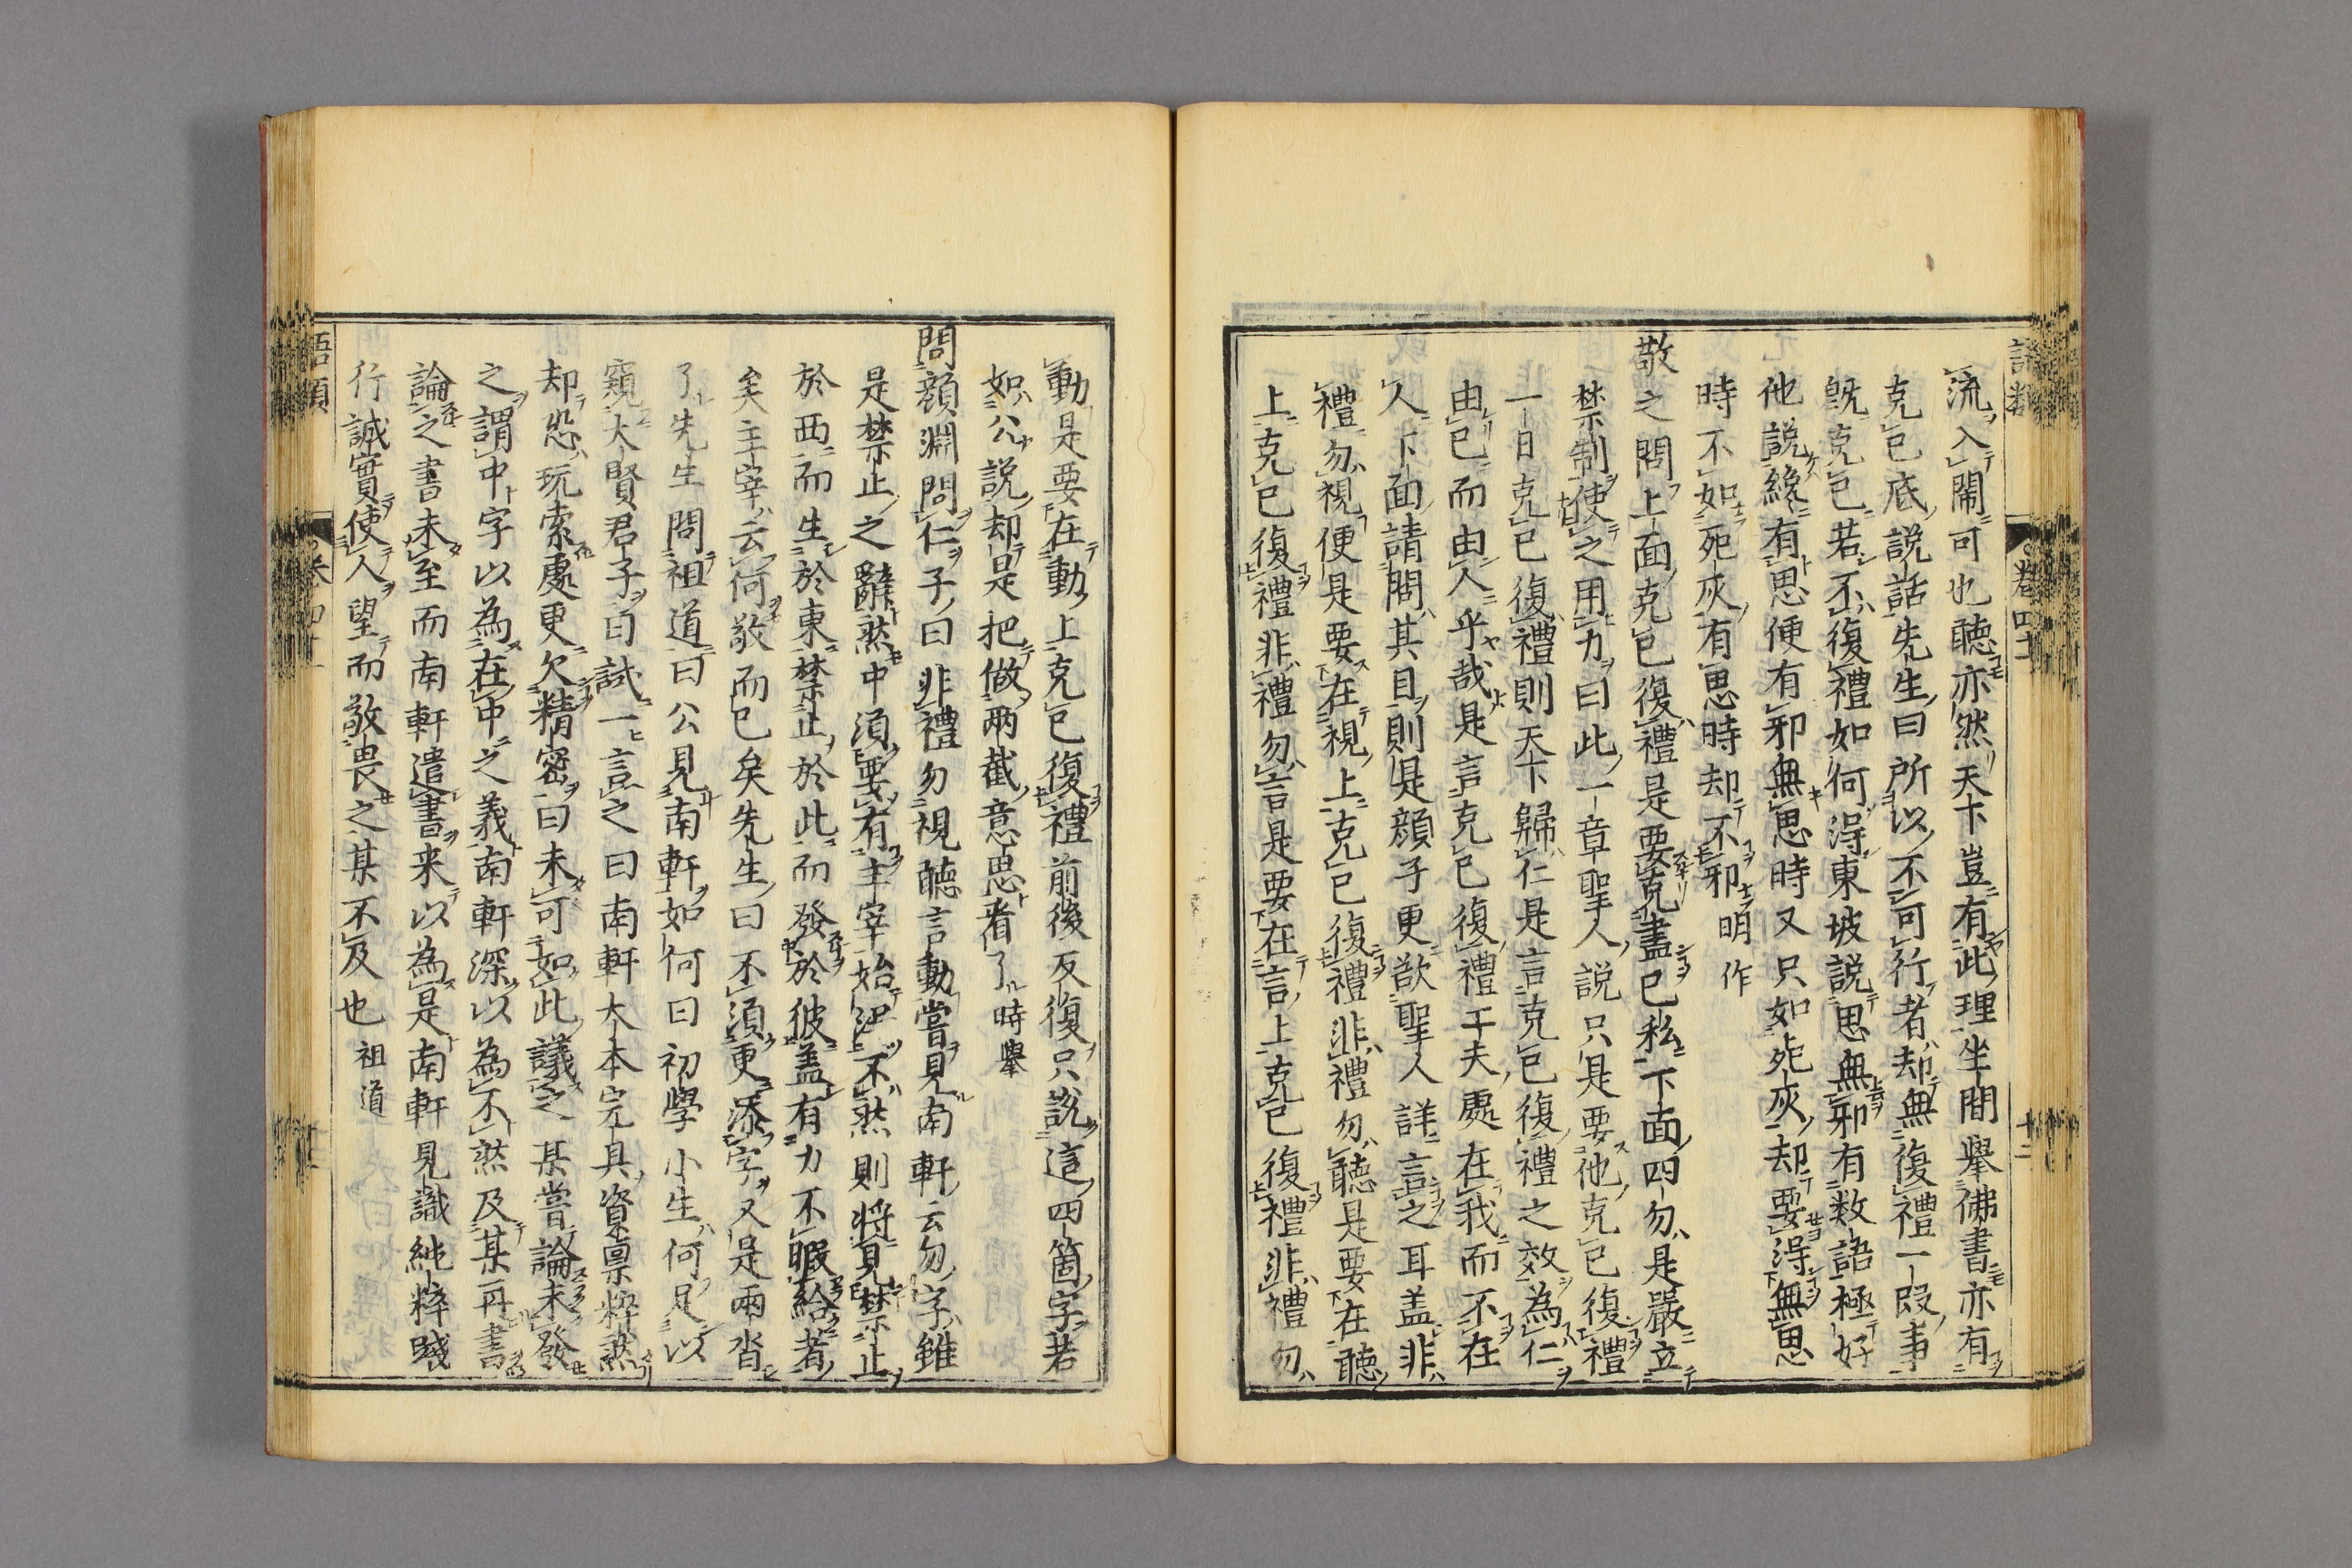 語類
卷四十一
十二
流入鬧可也聽亦然天下豈有此理坐間舉佛書亦有
克己底說話先生曰所以不可行者却無復禮一段事
既克己若不復禮如何得東坡說思無邪有数語極好
他說纔有思便有邪無思時又只如死灰却要得無思
時不如死灰有思時却不邪明作
敬之問上面克己復禮是要克盡己私下面四勿是嚴立
禁制使之用力曰此一章聖人說只是要他克己復禮
一日克己復禮則天下歸仁是言克己復禮之效為仁
由己而由人乎哉是言克己復禮工夫處在我而不在
人下面請問其目則是顔子更欲聖人詳言之耳盖非
禮勿視便是要在視上克己復禮非禮勿聽是要在聽
上克己復禮非禮勿言是要在言上克己復禮非禮勿
動是要在動上克己復禮前後反復只說這四箇字若
如公說却是把做兩截意思看了時舉
問顔淵問仁子曰非禮勿視聽言動嘗見南軒云勿字雖
是禁止之辭然中須要有主宰始得不然則將見禁止
於西而生於東禁止於此而發於彼盖有力不暇給者
矣主宰云何敬而已矣先生曰不須更添字又是兩沓
了先生問祖道曰公見南軒如何曰初學小生何足以
窺大賢君子曰試一言之曰南軒大本完具資禀粹然
却恐玩索處更欠精密曰未可如此議之某嘗論未發
之謂中字以為在中之義南軒深以為不然及某再書
論之書未至而南軒遣書来以為是南軒見識純粹踐
行誠實使人望而敬畏之某不及也祖道
語類